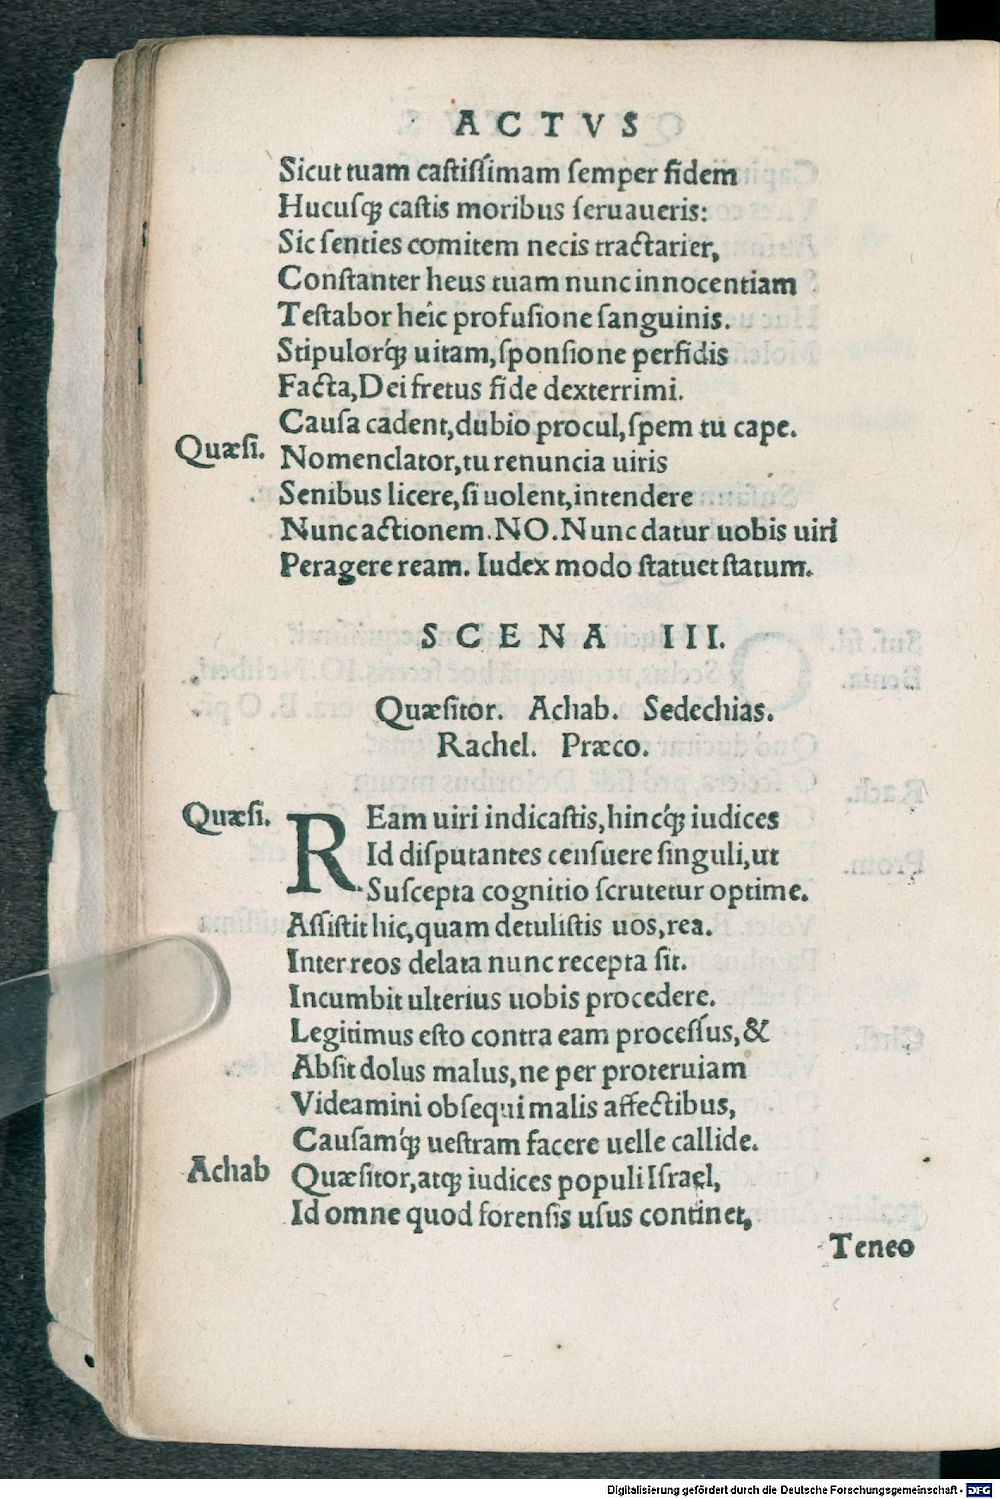 ACTVS
Sicut tuam castissimam semper fidem
Hucusq; castis moribus seruaueris:
Sic senties comitem necis tractarier,
Constanter heus tuam nunc innocentiam
Testabor heîc profusione sanguinis.
Stipulorq́; uitam, sponsione perfidis
Facta, Dei fretus fide dexterrimi.
Causa cadent, dubio procul, spem tu cape.
Quæsi. Nomenclator, tu renuncia uiris
Senibus licere, si uolent, intendere
Nunc actionem. NO. Nunc datur uobis uiri
Peragere ream. Iudex modo statuet statum.
SCENA III.
Quæsitor. Achab. Sedechias.
Rachel. Præco.
Quæsi. REam uiri indicastis, hincq́; iudices
Id disputantes censuere singuli, ut
Suscepta cognitio scrutetur optime.
Assistit hic, quam detulistis uos, rea.
Inter reos delata nunc recepta sit.
Incumbit ulterius uobis procedere.
Legitimus esto contra eam processus, &
Absit dolus malus, ne per proteruiam
Videamini obsequi malis affectibus,
Causamq́; uestram facere uelle callide.
Achab Quæsitor, atq; iudices populi Israel,
Id omne quod forensis usus continet,
Teneo
Digitalisierung gefördert durch die Deutsche Forschungsgemeinschaft - DFG